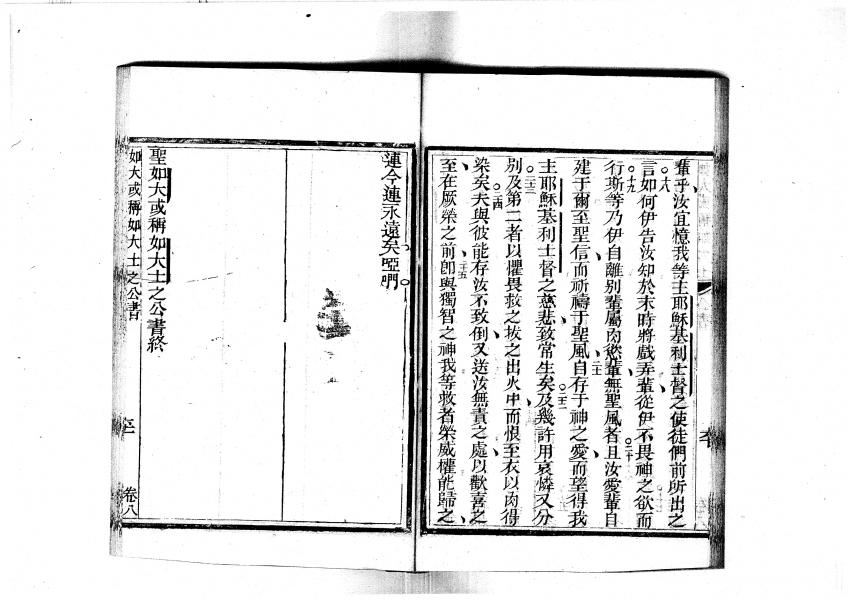 輩乎汝宜憶我等主耶穌基利士督之使徒們前所出之
言如何伊告汝知於末時將戲弄輩從伊不畏神之欲而
行斯等乃伊自離別輩屬肉慾輩無聖風者且汝愛輩自
建于爾至聖信而祈禱于聖風自存于神之愛而望得我
主耶穌基利士督之慈悲致常生矣及幾許用哀憐又分
別及第二者以懼畏救之拔之出火中而恨至衣以肉得
染矣夫與彼能存汝不致倒又送汝無責之處以歡喜之
至在厥榮之前即與獨智之神我等救者榮威權能歸之
連今連永遠矣啞們
聖如大或稱如大士之公書終
如大或稱如大士之公書
卷八